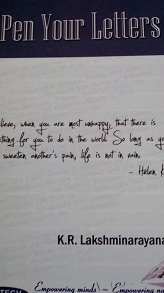 Pen Your Letters
lieve, when you are most unhappy, that there is
thing for you to do in the world. So long as yo
sweeten another's pain, life is not in vain.
- Helen K
K.R. Lakshminarayana
TECH Empowering minds! ~ Empowering na